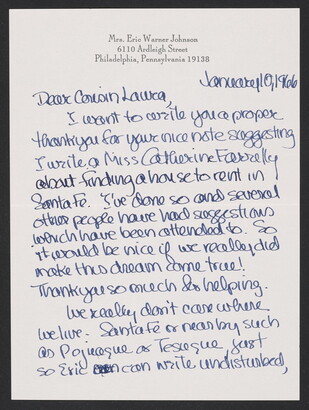 Mrs. Eric Warner Johnson
6110 Ardleigh Street
Philadelphia, Pennsylvania 19138
January 10, 1966
Dear Cousin Laura,
I want to write you a proper
thankyou for your nice note suggesting
I write a Miss Catherine Farrelly
about finding a house to rent in
Santa Fe. I've done so and several
other people have had suggestions
which have been attended to. So
it would be nice if we really did
make this dream come true!
Thankyou so much for helping.
We really don't care where
we live. Santa Fe or nearby such
as Pojuaque or Tesuque, just
so Eric can write undisturbed,